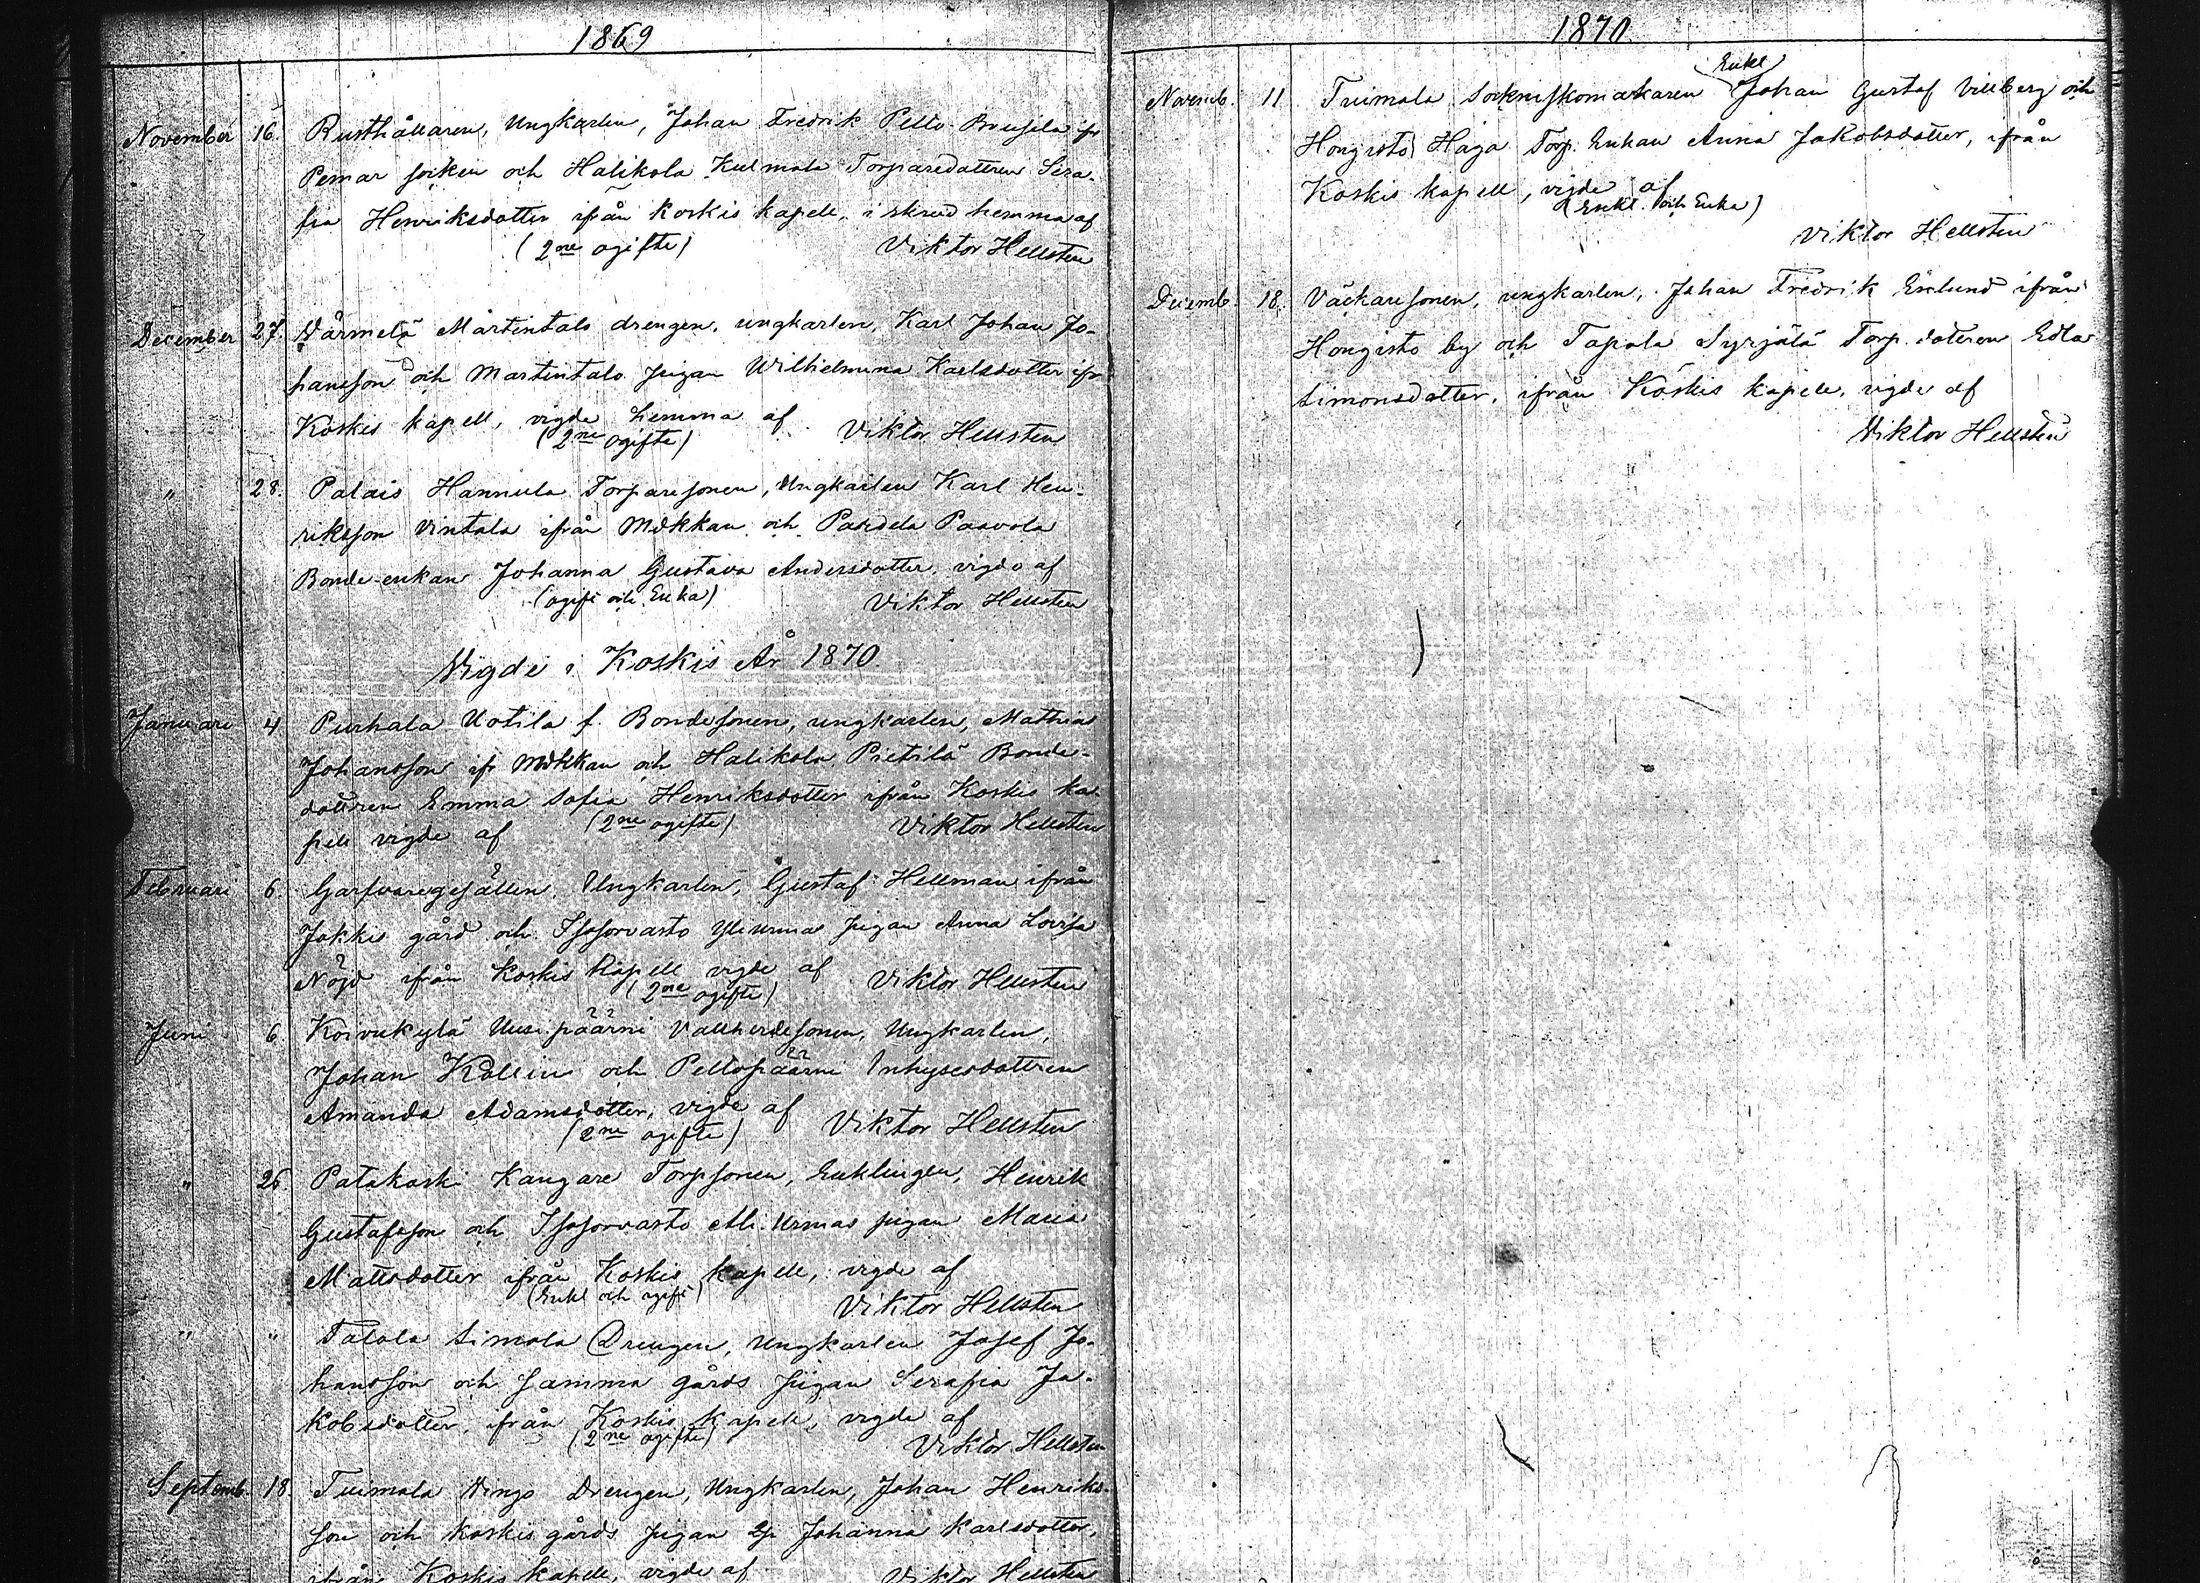 1869
November 16. Rusthållaren, Ungkarlen, Johan Fredrik Pello Brusila ifr
Pemar socken och Halikola Kulmala Torparedottren Sera-
fia Henriksdotter ifrån Koskis kapell, i skrud hemma af
(2ne ogifte) Viktor Hellsten
December 27. Värmelä Mårtintalo drengen, ungkarlen, Karl Johan Jo-
hansson och Martintalo pigan Wilhelmina Karlsdotter ifr
Koskis kapell, vigde hemma af
(2ne ogifte) Viktor Hellsten
" 28. Palais Hannula Torparesonen, Ungkarlen Karl Hen-
riksson Vintala ifrån Mokkan och Pardela Paavola
Bonde-enkan Johanna Gustava Andersdotter, vigda af
(ogift och Enka) Viktor Hellsten
Vigde i Koskis År 1870
Januari 4 Purhala Uotila f. Bondesonen, ungkarlen, Mathias
Johansson ifr Mokkan och Halikola Pietilä Bonde-
dottren Emma Sofia Henriksdotter ifrån Koskis ka-
pell vigde af (2ne ogifte) Viktor Hellsten
Februari 6. Garfvaregesällen, Ungkarlen, Gustaf Hellman ifrån
Jokkis gård och Issorvasto Yliurmas pigan Anna Lovisa
Nöjd ifrån Koskis kapell vigde af
(2ne ogifte) Viktor Hellsten
Juni 6. Koivukylä Uusipäärni Vallherdesonen, Ungkarlen,
Johan Kallin och Peltopäärni Inhysesdottren
Amanda Adamsdotter, vigde af
(2ne ogifte) Viktor Hellsten
" 26 Patakoski Kangare Torpsonen, Enklingen, Henrik
Gustafsson och Issorvasto Ali-Urmas pigan Maria
Mattsdotter ifrån Koskis kapell, vigde af
(Enkl och ogift) Viktor Hellsten
" " Talola Simola Drengen, Ungkarlen Josef Jo-
hansson och samma gårds pigan Serafia Ja-
kobsdotter, ifrån Koskis kapell, vigde af
(2ne ogifte) Viktor Hellsten
Septemb. 18. Tuimala Vingo Drengen, Ungkarlen, Johan Henriks-
son och Koskis gårds pigan Johanna Karlsdotter,
ifrån Koskis kapell, vigde af Viktor Hellsten
1870
Enkl
Novemb. 11 Tuimala Sockneskomakaren Johan Gustaf Villberg och
Hongisto Haga Torp. Enkan Anna Jakobsdotter, ifrån
Koskis kapell, vigde af
(Enkl. och Enka)
Viktor Hellsten
Decemb. 18. Väckaresonen, ungkarlen, Johan Fredrik Enlund ifrån
Hongisto by och Tapala Syrjälä Torp. dotren Edla
Simonsdotter, ifrån Koskis kapell, vigde af
Viktor Hellsten